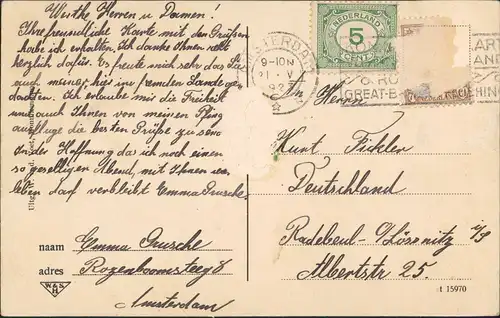 Werthe Herren u Damen!
Ihre freundliche Karte mit den Grüßen
habe ich erhalten. Ich danke Ihnen recht
herzlich dafür. Es freute mich sehr das Sie
auch meiner, hier im fremden Lande ge-
dachten. Ich erlaube mir die Freiheit
und auch Ihnen von meinem Pfing
ausfluge die besten Grüße zu sen.
In der Hoffnung das ich noch einen
so geselligen Abend, mit Ihnen ver
leben darf verbleibt Emma Grusche.
naam Emma Grusche
adres Rozenboomsteeg 8
Amsterdam
W&S
H
AMSTERDAM
9-10 N
NEDERLAND
5
CENT
GREAT-B
An Herrn
Kurt Fickler
Deutschland
Radebeul-Lössnitz i/S
Albertstr 25.
t 15970